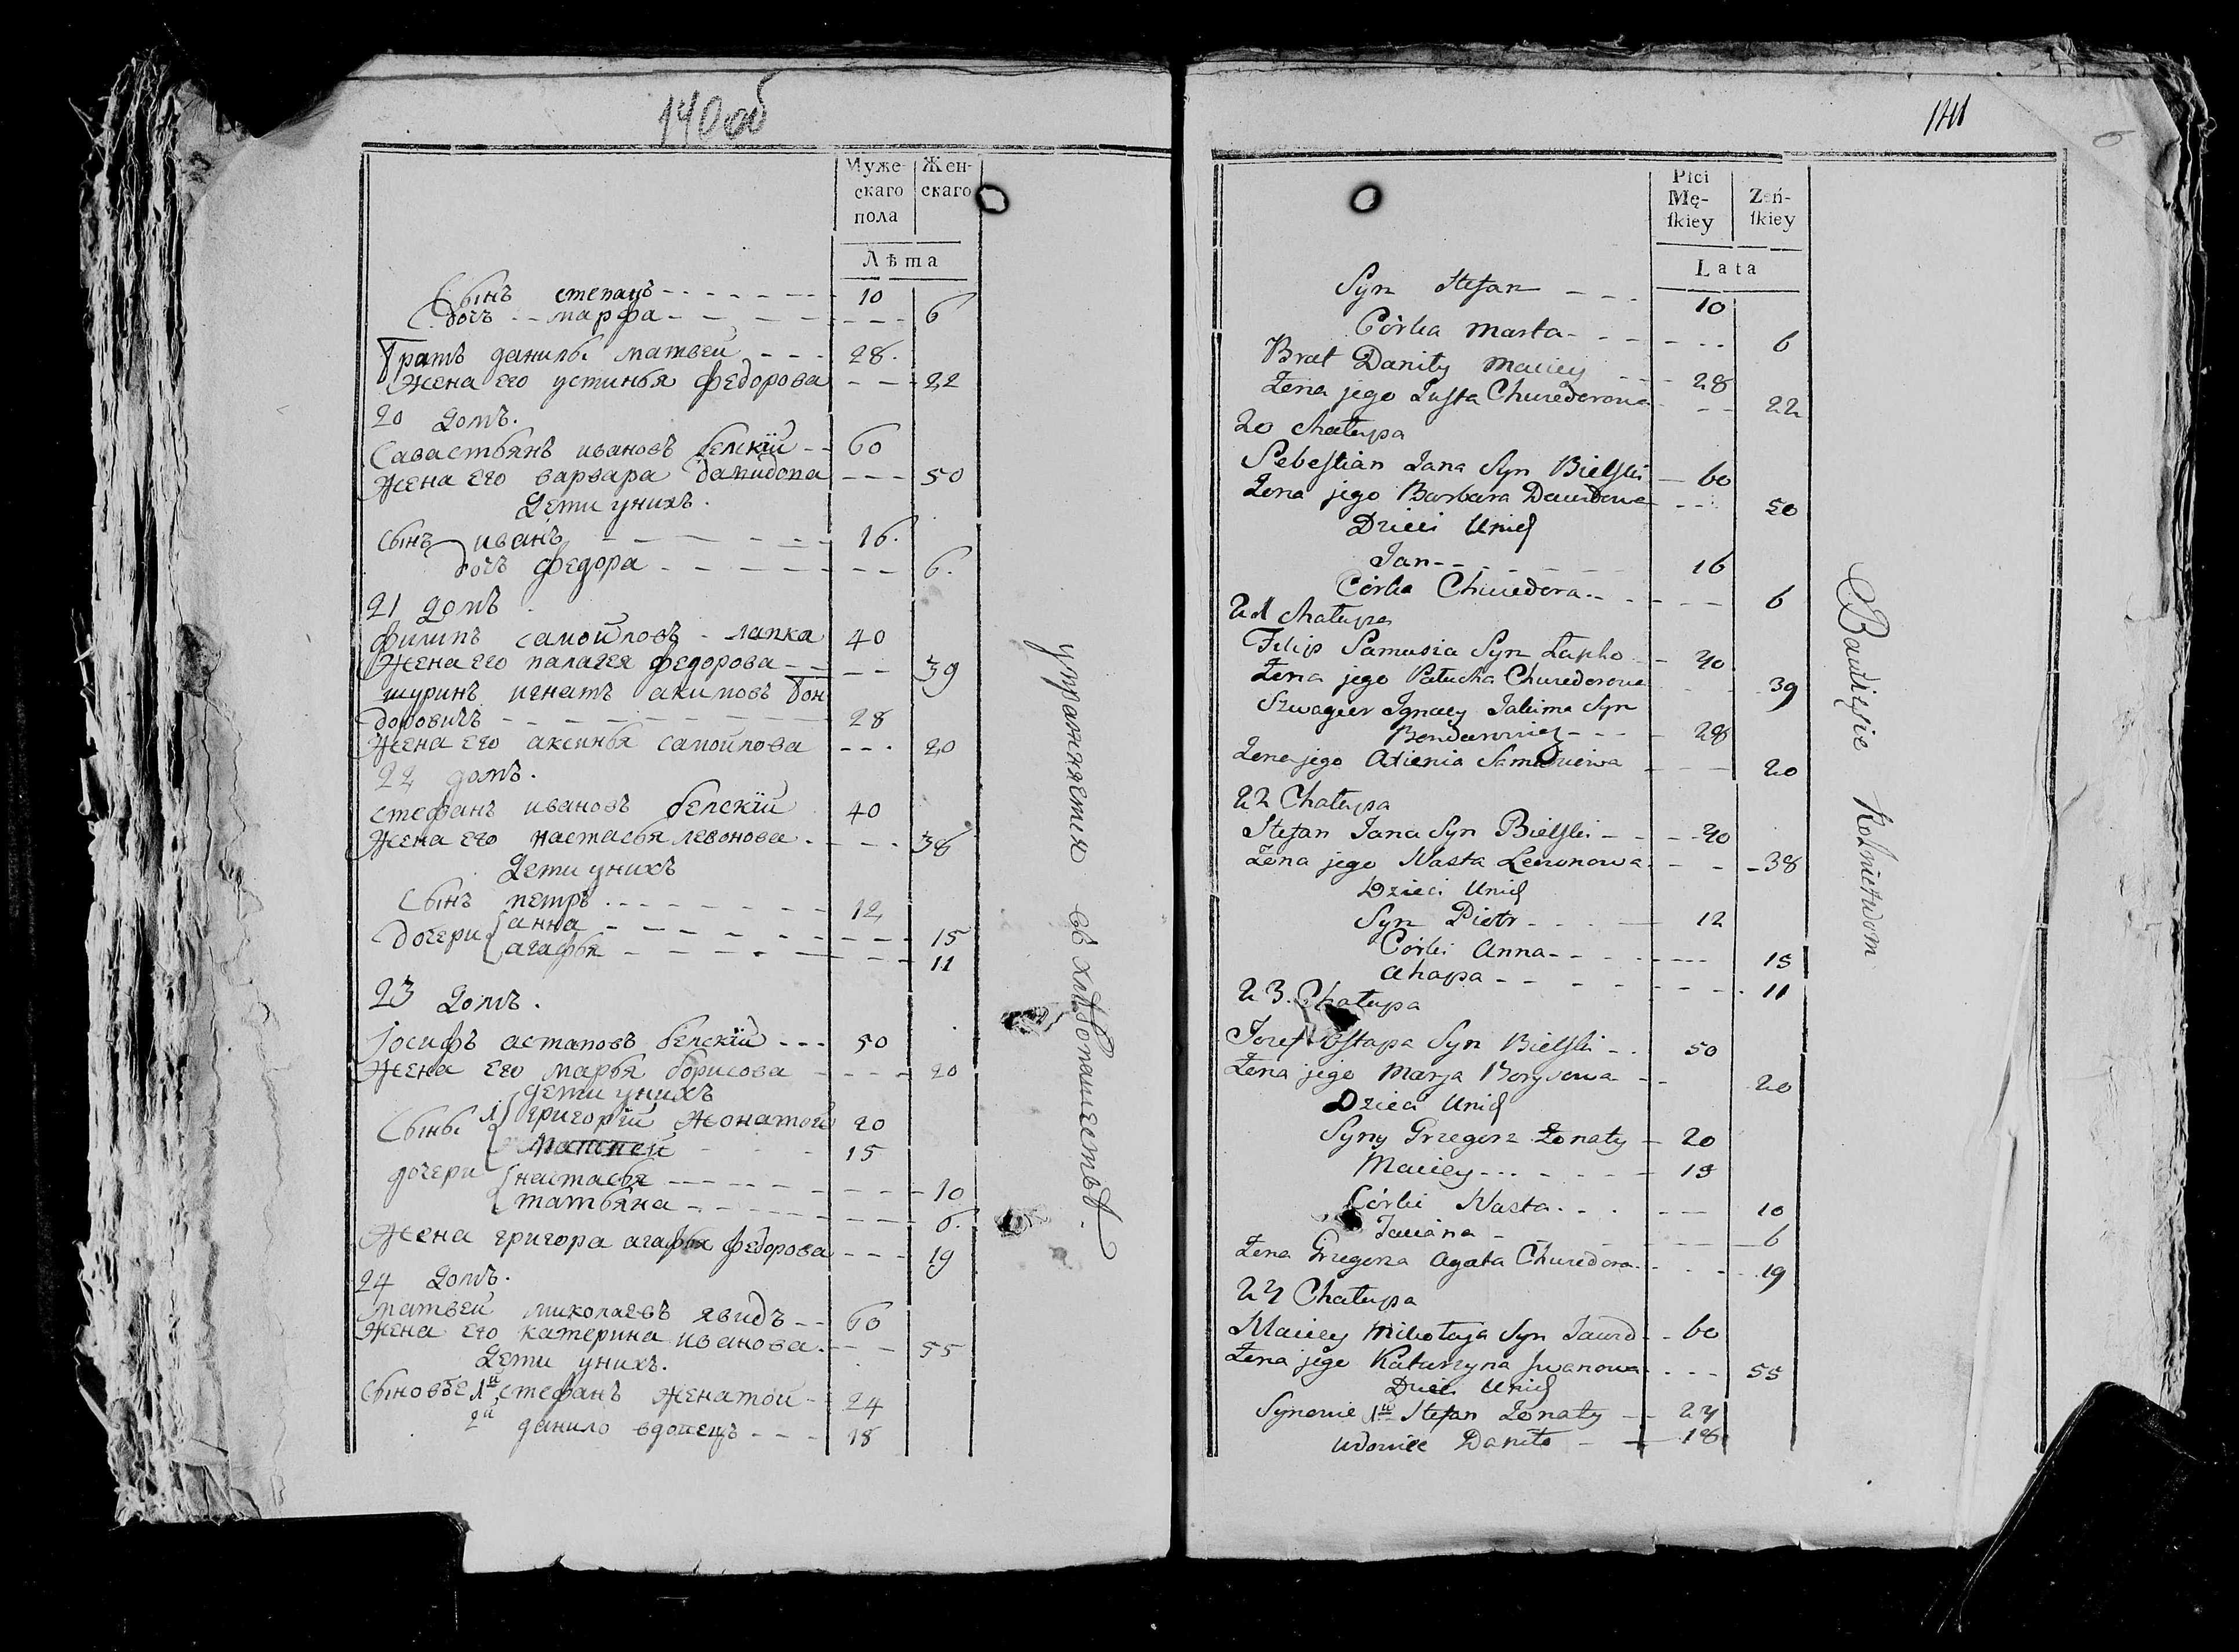 140 об
Муже-
скаго
пола
Жен-
скаго
Лѣта
Сынъ степанъ 10
дочъ марфа 6
Братъ данилы матвеи 28
Жена его устинья федорова 22
20 домъ.
Савастьянъ ивановъ белскїй 60
Жена его варвара давидова 50
Дети унихъ.
сынъ иванъ 16
дочъ федора 6
21 домъ
филипъ самойловъ лапка 40
Жена его палагея федорова 39
шуринъ игнатъ акимовъ бон
доровичъ 28
Жена его аксинья самойлова 20
22 домъ.
стефанъ ивановъ белскїй 40
Жена его настасья левонова 38
Дети унихъ
Сынъ петръ 12
дочери анна 15
агафья 11
23 домъ.
Іосифъ астаповъ белскїй 50
Жена его марья борисова 20
дети унихъ
Сыны григорїй жонатой 20
Матвей 15
дочери настасья 10
татьяна 6
Жена григора агафья федорова 19
24 домъ.
матвеи миколаевъ явидъ 60
жена его катерина иванова 55
Дети унихъ.
сыновъе 1й стефанъ женатои 24
2й данило вдовецъ 18
упражняется въ хлѣбопашествѣ.
141
Płci
Mę-
ſkiey
Żeń-
ſkiey
Lata
Syn Stefan 10
Córka Marta 6
Brat Daniły Maciey 28
Żena jego Justa Chwedorowa 22
20 chałupa
Sebestian Jana Syn Bielski 60
Żena jego Barbara Dawidowa 50
Dzieci Unich
Jan 16
Córka Chwedora 6
21 chałupa
Filip Samusia Syn Łapko 40
Żena jego Pałucha Chwedorowa 39
Szwagier Ignacy Jakima Syn
Bondarowicz 28
Żena jego Axienia Samusiowa 20
22 Chałupa
Stefan Jana Syn Bielski 40
Żena jego Nasta Lewonowa 38
Dzieci Unich
Syn Piotr 12
Córki Anna 15
Ahapa 11
23. Chałupa
Jozef Ostapa Syn Bielski 50
Żena jego Marja Borysowa 20
Dzieci Unich
Syny Grzegorz Żonaty 20
Maciey 15
Córki Nasta 10
Taciana 6
Żena Grzegorza Agata Chwedora 19
24 Chałupa
Maciey Mikołaja Syn Jawid 60
Żena jego Katarzyna Jwanowa 55
Dzieci Unich
Synowie 1й Stefan Żonaty 24
Udowiec Daniło 18
Bawiąsie Rolnictwom